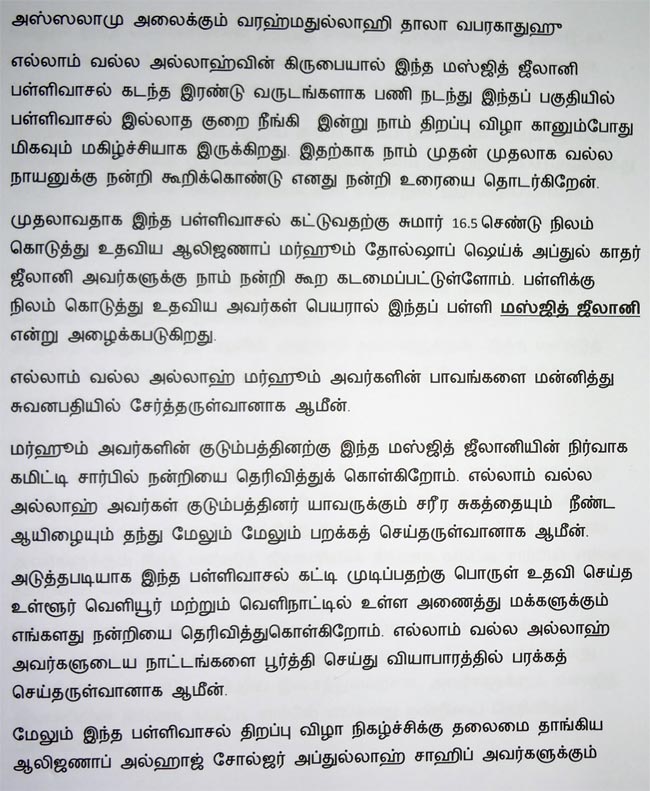 அஸ்ஸலாமு அலைக்கும் வரஹ்மதுல்லாஹி தாலா வபரகாதுஹு
எல்லாம் வல்ல அல்லாஹ்வின் கிருபையால் இந்த மஸ்ஜித் ஜீலானி
பள்ளிவாசல் கடந்த இரண்டு வருடங்களாக பணி நடந்து இந்தப் பகுதியில்
பள்ளிவாசல் இல்லாத குறை நீங்கி இன்று நாம் திறப்பு விழா கானும்போது
மிகவும் மகிழ்ச்சியாக இருக்கிறது. இதற்காக நாம் முதன் முதலாக வல்ல
நாயனுக்கு நன்றி கூறிக்கொண்டு எனது நன்றி உரையை தொடர்கிறேன்.
முதலாவதாக இந்த பள்ளிவாசல் கட்டுவதற்கு சுமார் 16.5 செண்டு நிலம்
கொடுத்து உதவிய ஆலிஜணாப் மர்ஹூம் தோல்ஷாப் ஷெய்க் அப்துல் காதர்
ஜீலானி அவர்களுக்கு நாம் நன்றி கூற கடமைப்பட்டுள்ளோம். பள்ளிக்கு
நிலம் கொடுத்து உதவிய அவர்கள் பெயரால் இந்தப் பள்ளி மஸ்ஜித் ஜீலானி
என்று அழைக்கபடுகிறது.
எல்லாம் வல்ல அல்லாஹ் மர்ஹூம் அவர்களின் பாவங்களை மன்னித்து
சுவனபதியில் சேர்த்தருள்வானாக ஆமீன்.
மர்ஹூம் அவர்களின் குடும்பத்தினற்கு இந்த மஸ்ஜித் ஜீலானியின் நிர்வாக
கமிட்டி சார்பில் நன்றியை தெரிவித்துக் கொள்கிறோம். எல்லாம் வல்ல
அல்லாஹ் அவர்கள் குடும்பத்தினர் யாவருக்கும் சரீர சுகத்தையும் நீண்ட
ஆயிழையும் தந்து மேலும் மேலும் பறக்கத் செய்தருள்வானாக ஆமீன்.
அடுத்தபடியாக இந்த பள்ளிவாசல் கட்டி முடிப்பதற்கு பொருள் உதவி செய்த
உள்ளூர் வெளியூர் மற்றும் வெளிநாட்டில் உள்ள அணைத்து மக்களுக்கும்
எங்களது நன்றியை தெரிவித்துகொள்கிறோம். எல்லாம் வல்ல அல்லாஹ்
அவர்களுடைய நாட்டங்களை பூர்த்தி செய்து வியாபாரத்தில் பரக்கத்
செய்தருள்வானாக ஆமீன்.
மேலும் இந்த பள்ளிவாசல் திறப்பு விழா நிகழ்ச்சிக்கு தலைமை தாங்கிய
ஆலிஜணாப் அல்ஹாஜ் சோல்ஜர் அப்துல்லாஹ் சாஹிப் அவர்களுக்கும்